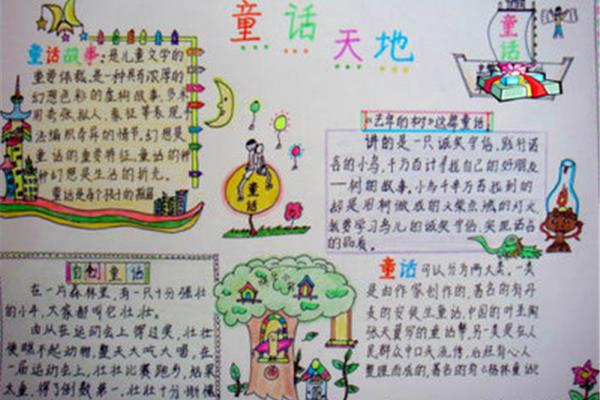 童话天地
童话
童话故事:是儿童文学的
重要体裁,是一种具有浓厚的
幻想色彩的虚构故事,多采
用夸张、拟人、象征等表现手
法编织奇异的情节,幻想是
童话的重要特征,童话的种
种幻想是生活的折光。
童话是每个孩子的
童话
《去年的树》这篇童话
讲的是一只诚实守信、践行诺
言的小鸟,千方百计寻找自己的好朋友
——树的故事,小鸟千辛万苦找到的
却是用树做成的火柴点燃的灯火
我要学习鸟儿的诚实守信、实现诺言
的品质。
自创童话
在一片森林里,有一只十分强壮
的小牛,大家都叫它壮壮。
由从在运动会上得过奖,壮壮
便瞧不起动物,整天大吹大唱,在
一届运动会上,壮壮比赛跑步,结果
太重,得了倒数第一,壮壮十分惭愧
童话可以分为两大类,一类
是由作家创作的,著名的有丹
麦的安徒生童话,中国的叶圣陶
张天翼等的童话等,另一类是在人
民群众中口头流传,后经有心人
整理而成的,著名的有《格林童话》